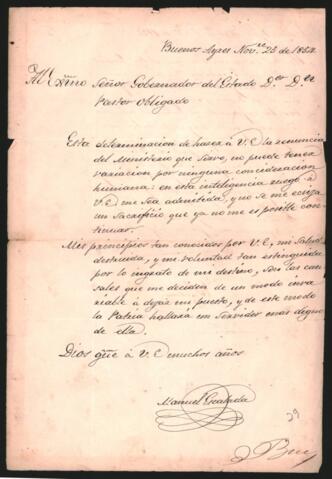 Buenos Ayres Nov.re 25 de 1854.
Al Exmo Señor Gobernador del Estado D.or D.n
Pastor Obligado
Esta determinacion de hacer à V.E la renuncia
del Ministerio que sirvo, no puede tener
variacion por ninguna consideracion
humana: en esta inteligencia ruego à
V.E me sea admitida, y no se me ecsija
un sacrificio que ya no me es posible con-
tinuar.
Mis principios tan conocidos por V.E, mi salud
destruida, y mi voluntad tan estinguida
por lo ingrato de mi destino, son las cau-
sales que me deciden de un modo inva-
riable à dejar mi puesto, y de este modo
la Patria hallara un Servidor mas digno
de ella.
Dios gũe à V.E muchos años
Manuel
29